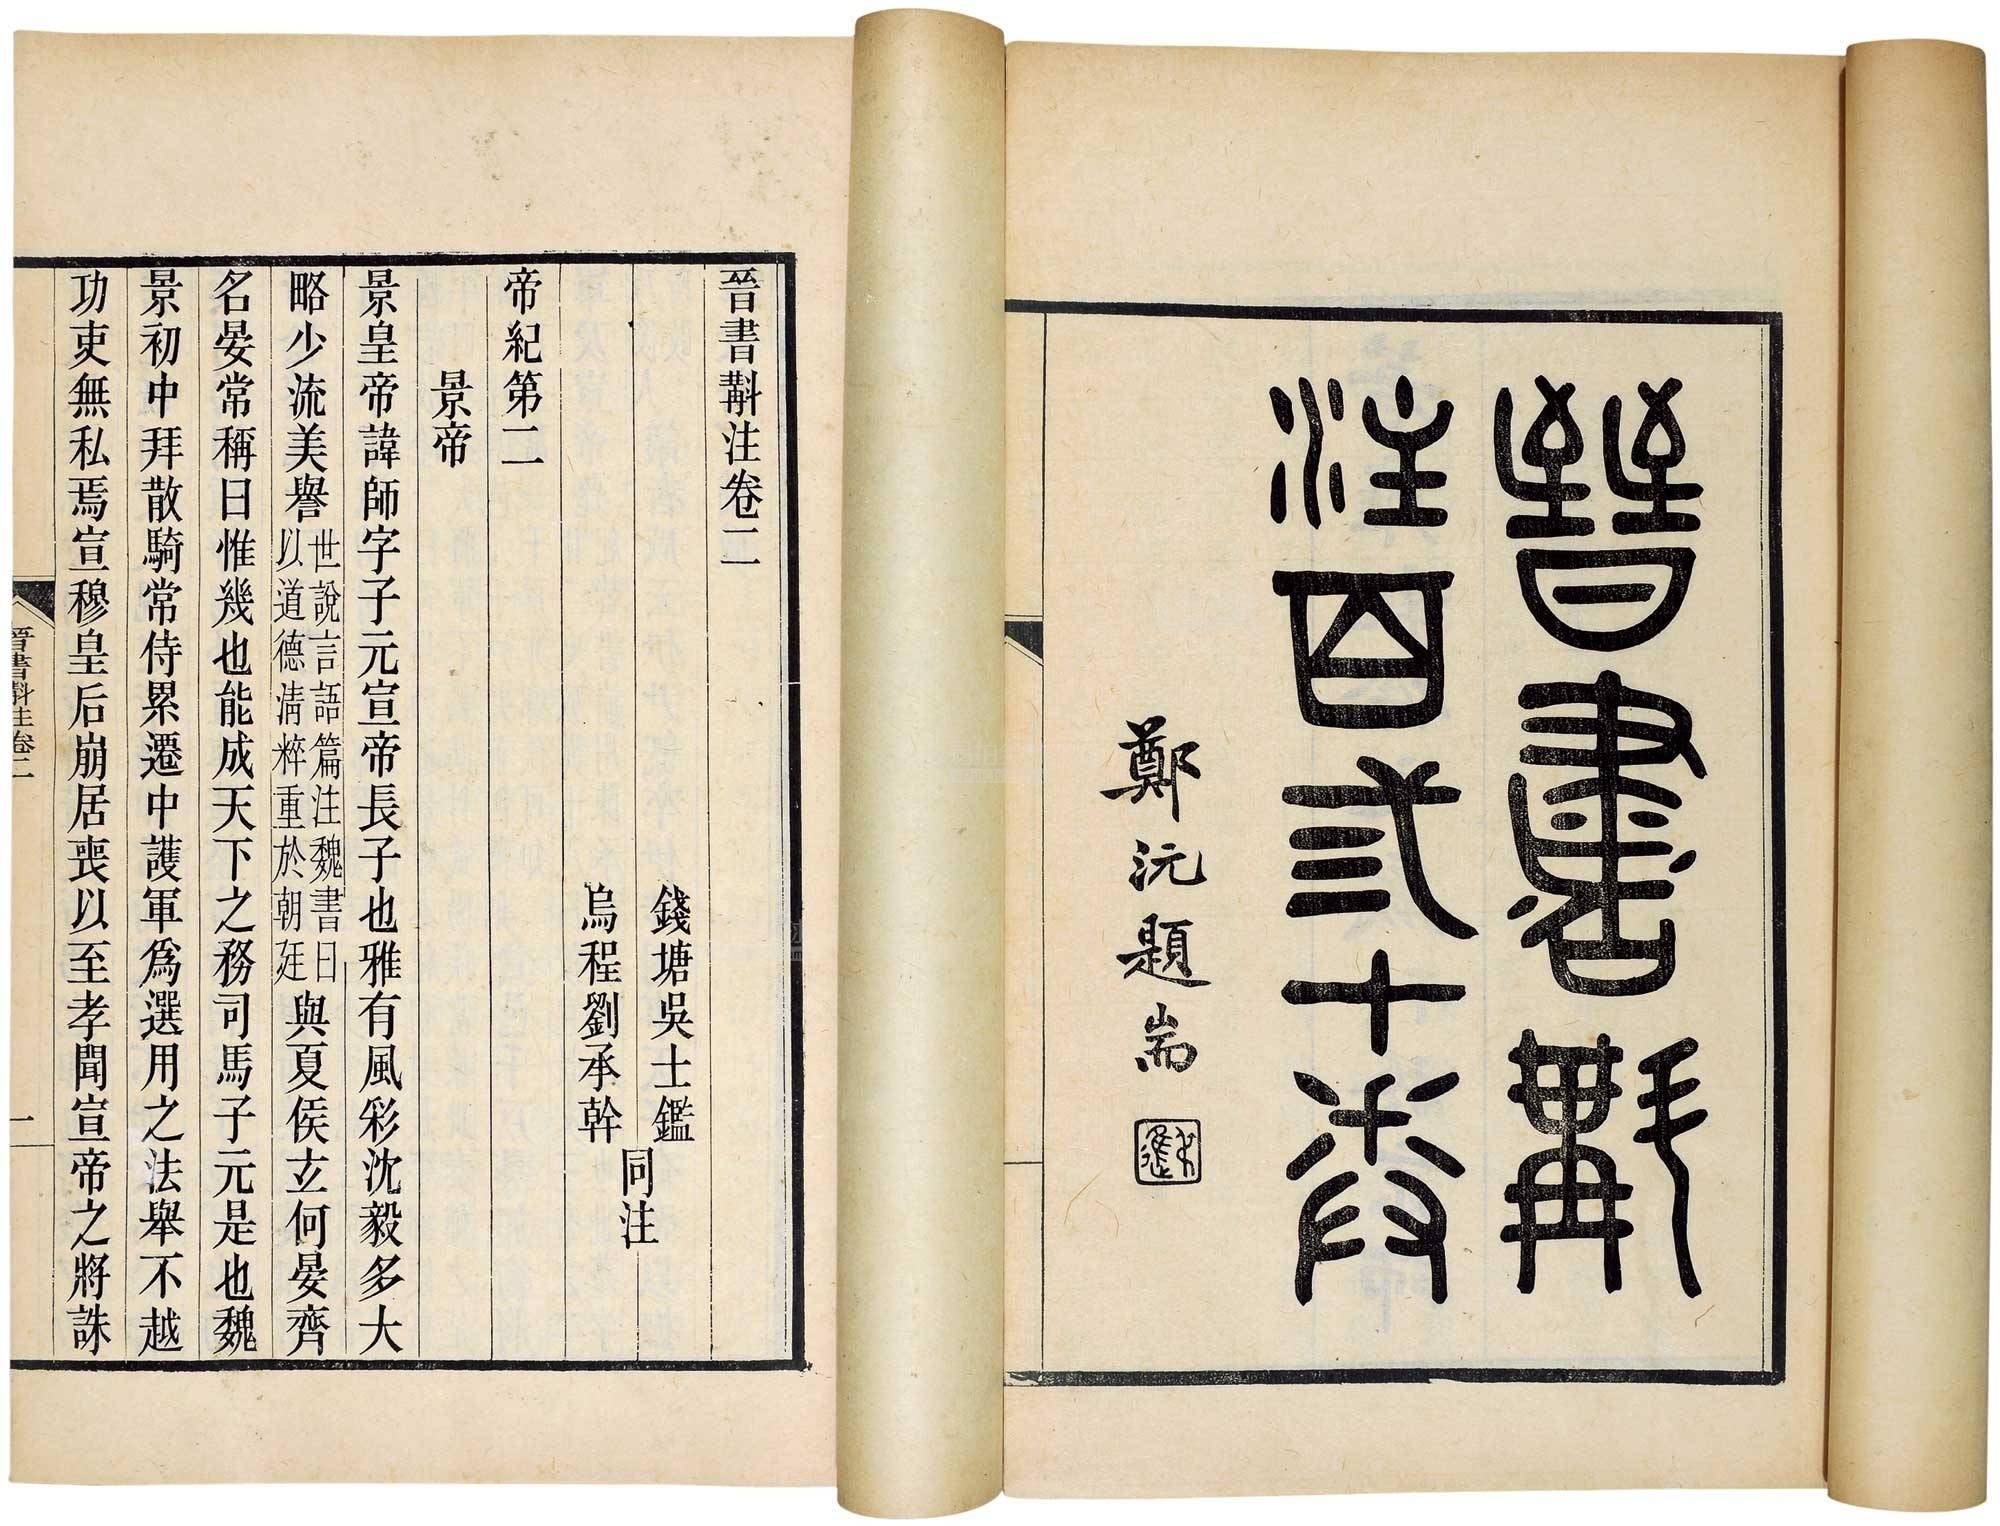 晉書斠
注百弎十卷
鄭沅題耑
晉書斠注卷二
錢塘吳士鑑
烏程劉承幹
同注
帝紀第二
景帝
景皇帝諱師字子元宣帝長子也雅有風彩沈毅多大
略少流美譽世說言語篇注魏書曰以道德清粹重於朝廷與夏侯玄何晏齊
名晏常稱曰惟幾也能成天下之務司馬子元是也魏
景初中拜散騎常侍累遷中護軍為選用之法舉不越
功吏無私焉宣穆皇后崩居喪以至孝聞宣帝之將誅
晉書斠注卷二
一